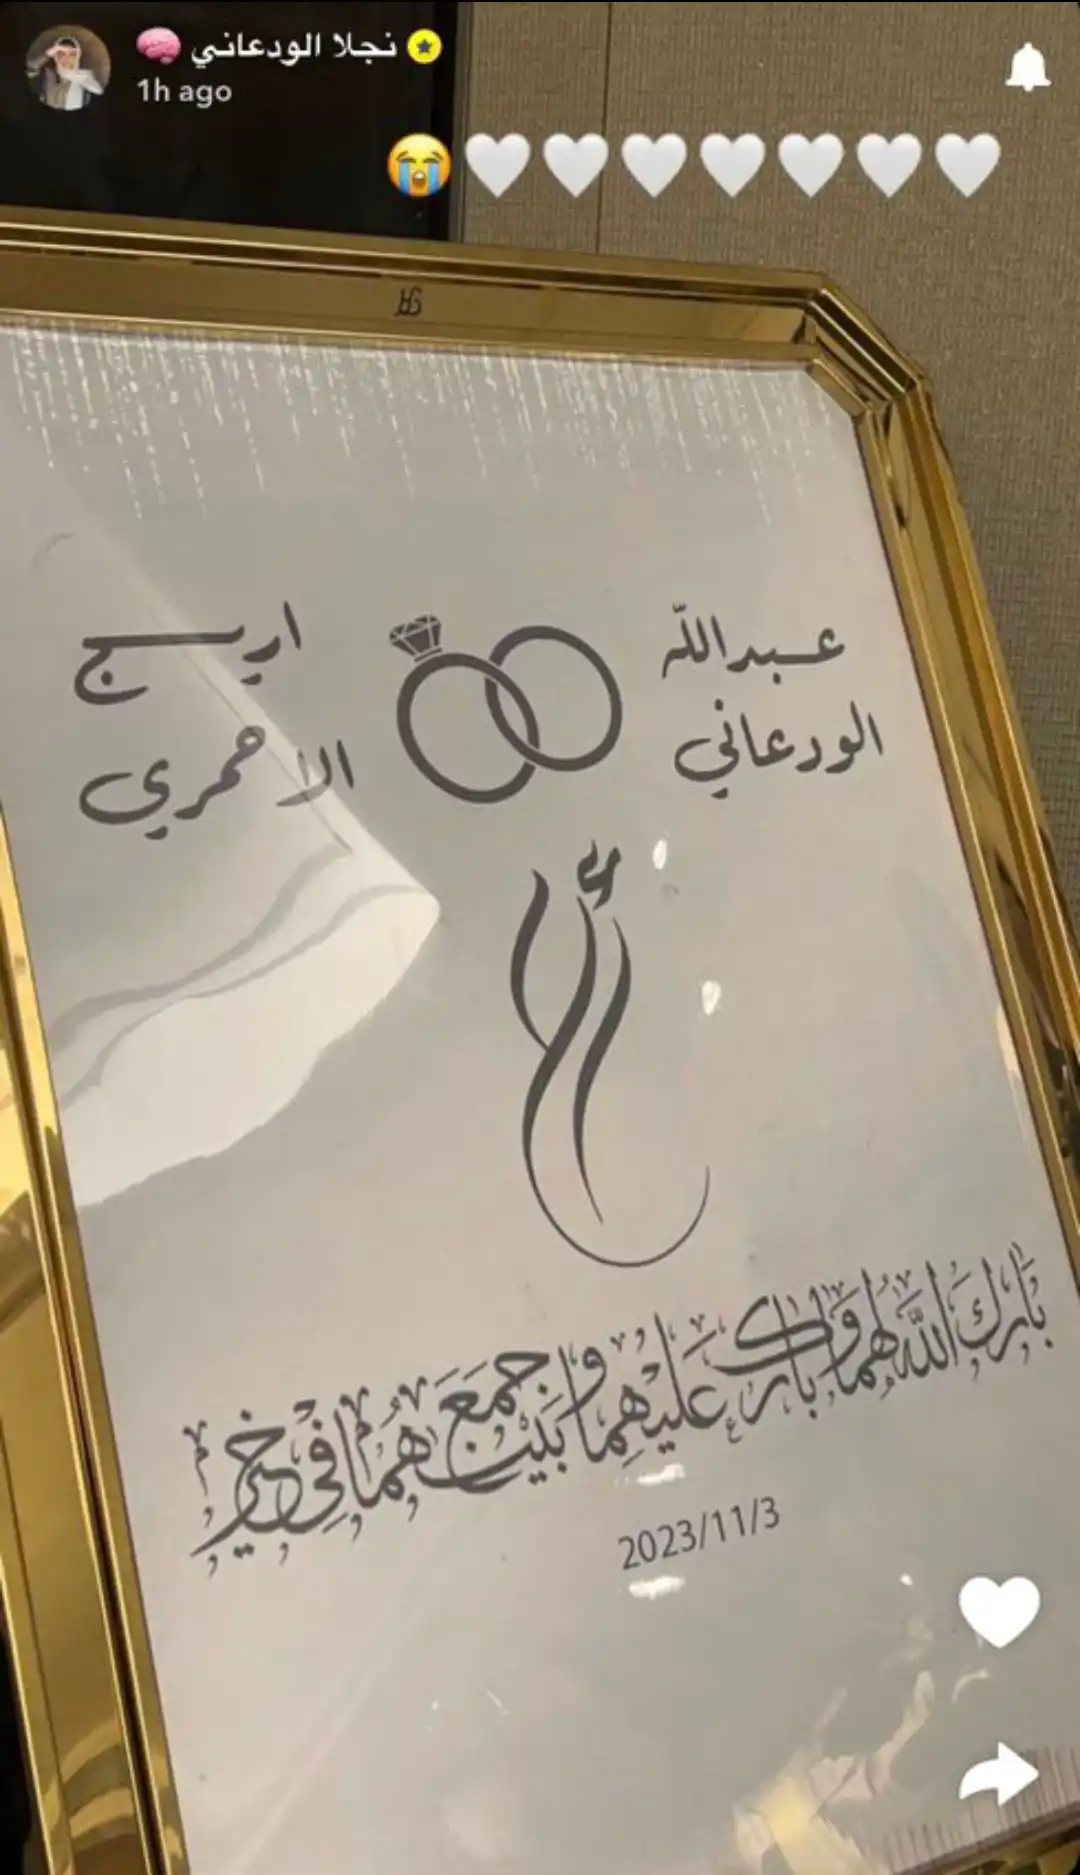 نجلا الودعاني 🧠
1h ago
😭🤍🤍🤍🤍🤍🤍🤍
عبدالله
الودعاني
اريج
الاحمري
بَارَكَ اللَّهُ لَهُمَا وَبَارَكَ عَلَيْهِمَا وَجَمَعَ بَيْنَهُمَا فِي خَيْرٍ
2023/11/3